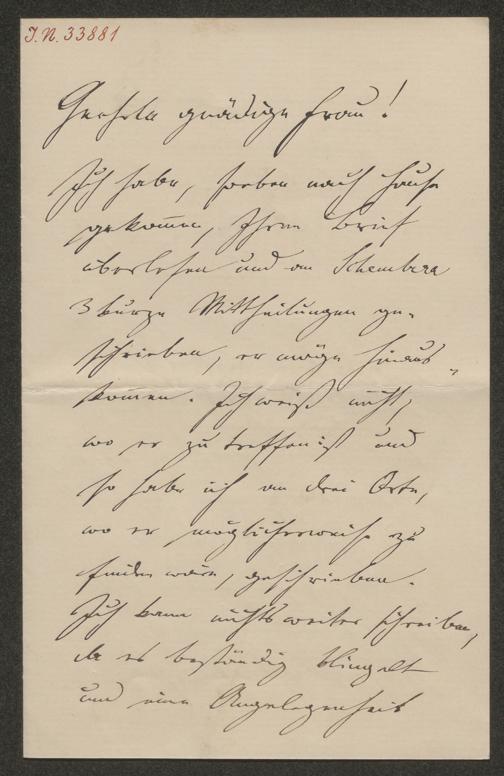 J.N. 33881
Geehrte gnädige Frau!
Ich habe, soeben nach Hause
gekommen, Ihren Brief
überlesen und an Schembera
3 kurze Mittheilungen ge-
schrieben, er möge hinaus-
kommen. Ich weiß nicht,
wo er zu treffen ist und
so habe ich an drei Orte,
wo er möglicherweise zu
finden wäre, geschrieben.
Ich kann nichts weiter schreiben,
da es beständig klingelt
und eine Angelegenheit